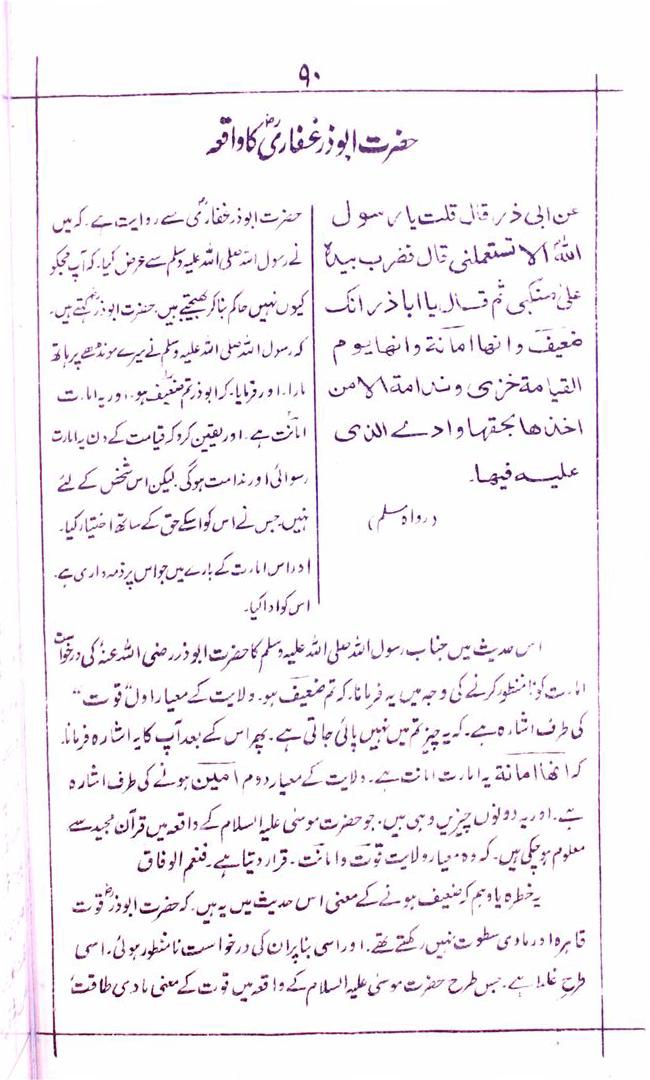 ۹۰
حضرت ابوذر غفاریؓ کا واقعہ
عن ابی ذر قال قلت یا رسول
اللہ الا تستعملنی قال فضرب بیدہ
علیٰ منکبی ثم قال یا اباذر انک
ضعیف وانہا امانة وانہا یوم
القیامة خزی وندامة الا من
اخذہا بحقہا وادے الذی
علیہ فیہا۔
(رواہ مسلم)
حضرت ابوذر غفاریؓ سے روایت ہے۔ کہ میں
نے رسول اللہ صلی اللہ علیہ وسلم سے عرض کیا۔ کہ آپ مجکو
کیوں نہیں حاکم بنا کر بھیجتے ہیں۔ حضرت ابوذرؓ کہتے ہیں۔
کہ رسول اللہ صلی اللہ علیہ وسلم نے میرے مونڈھے پر ہاتھ
مارا۔ اور فرمایا۔ کہ ابوذر تم ضعیف ہو۔ اور یہ امارت
امانت ہے۔ اور یقین کرو کہ قیامت کے دن یہ امارت
رسوائی اور ندامت ہوگی۔ لیکن اس شخص کے لئے
نہیں جس نے اس کو اسکے حق کے ساتھ اختیار کیا۔
اور اس امارت کے بارے میں جو اس پر ذمہ داری ہے۔
اس کو ادا کیا۔
اس حدیث میں جناب رسول اللہ صلی اللہ علیہ وسلم کا حضرت ابوذر رضی اللہ عنہ کی درخواست
امارت کو نامنظور کرنے کی وجہ میں یہ فرمانا۔ کہ تم ضعیف ہو۔ ولایت کے معیار اول قوت "
کی طرف اشارہ ہے۔ کہ یہ چیز تم میں نہیں پائی جاتی ہے۔ پھر اس کے بعد آپ کا یہ اشارہ فرمانا۔
کہ انہا امانة یہ امارت امانت ہے۔ ولایت کے معیار دوم امین ہونے کی طرف اشارہ
ہے۔ اور یہ دونوں چیزیں وہی ہیں۔ جو حضرت موسیٰ علیہ السلام کے واقعہ میں قرآن مجید سے
معلوم ہو چکی ہیں۔ کہ وہ معیار ولایت قوت و امانت۔ قرار دیتا ہے۔ فنعم الوفاق
یہ خطرہ یا وہم کہ ضعیف ہونے کے معنی اس حدیث میں یہ ہیں۔ کہ حضرت ابوذرؓ قوت
قاہرہ اور مادی سطوت نہیں رکھتے تھے۔ اور اسی بنا پر ان کی درخواست نامنظور ہوئی۔ اسی
طرح غلط ہے۔ جس طرح حضرت موسیٰ علیہ السلام کے واقعہ میں قوت کے معنی مادی طاقت